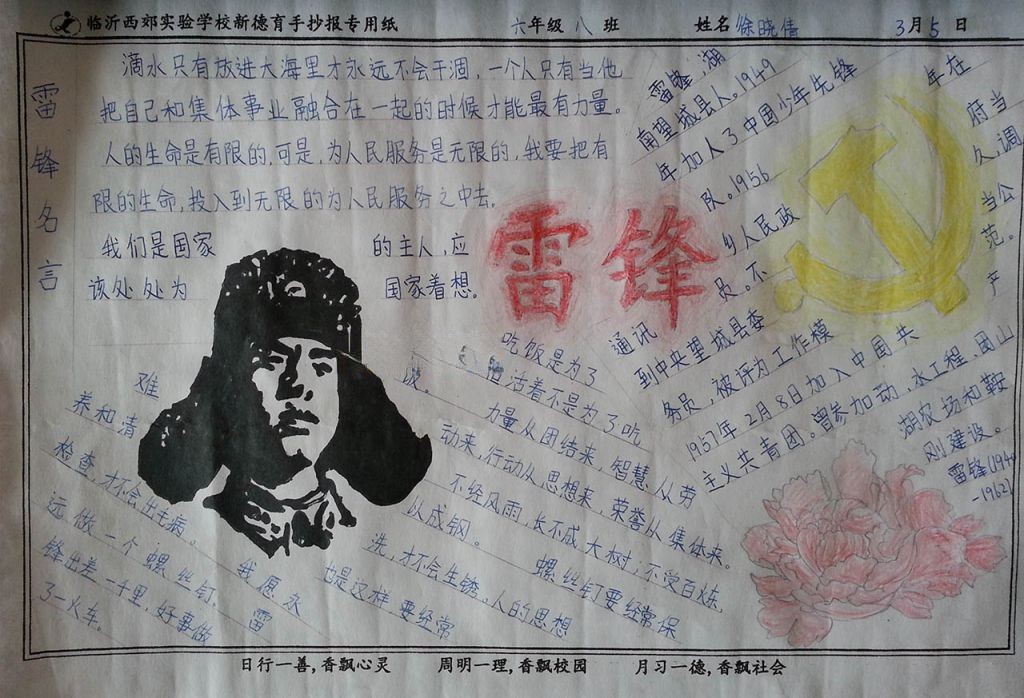 临沂西郊实验学校新德育手抄报专用纸
六年级 八 班
姓名 徐晓倩
3月5日
雷锋名言
滴水只有放进大海里才永远不会干涸,一个人只有当他
把自己和集体事业融合在一起的时候才能最有力量。
人的生命是有限的,可是,为人民服务是无限的,我要把有
限的生命,投入到无限的为人民服务之中去。
我们是国家 的主人,应
该处处为 国家着想。
雷锋
吃饭是为了
活着不是为了吃
饭。 力量从团结来,智慧从劳
动来,行动从思想来,荣誉从集体来。
不经风雨,长不成大树;不受百炼,
难以成钢。 螺丝钉要经常保
养和清洗,才不会生锈。人的思想
也是这样,要经常
检查,才不会出毛病。
我愿永
远做一个螺丝钉。
雷
锋出差一千里,好事做
了一火车。
雷锋,湖
南望城县人。1949
年加入了中国少年先锋
队。1956 年在
乡人民政府当
通讯员。不久,调
到中央望城县委当公
务员,被评为工作模范。
1957年2月8日加入中国共产
主义共青团。曾参加动,水工程、团山
湖农场和鞍
刚建设。
雷锋(1940
-1962)
日行一善,香飘心灵
周明一理,香飘校园
月习一德,香飘社会